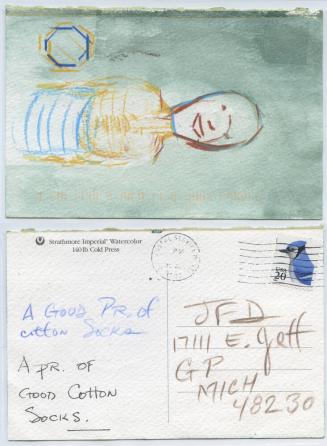 Strathmore Imperial® Watercolor
140lb Cold Press
USA
20
A GOOD PR. of
cotton Socks
A PR. OF
GOOD COTTON
SOCKS.
JFD
17111 E. Jeff
GP
MICH
48230